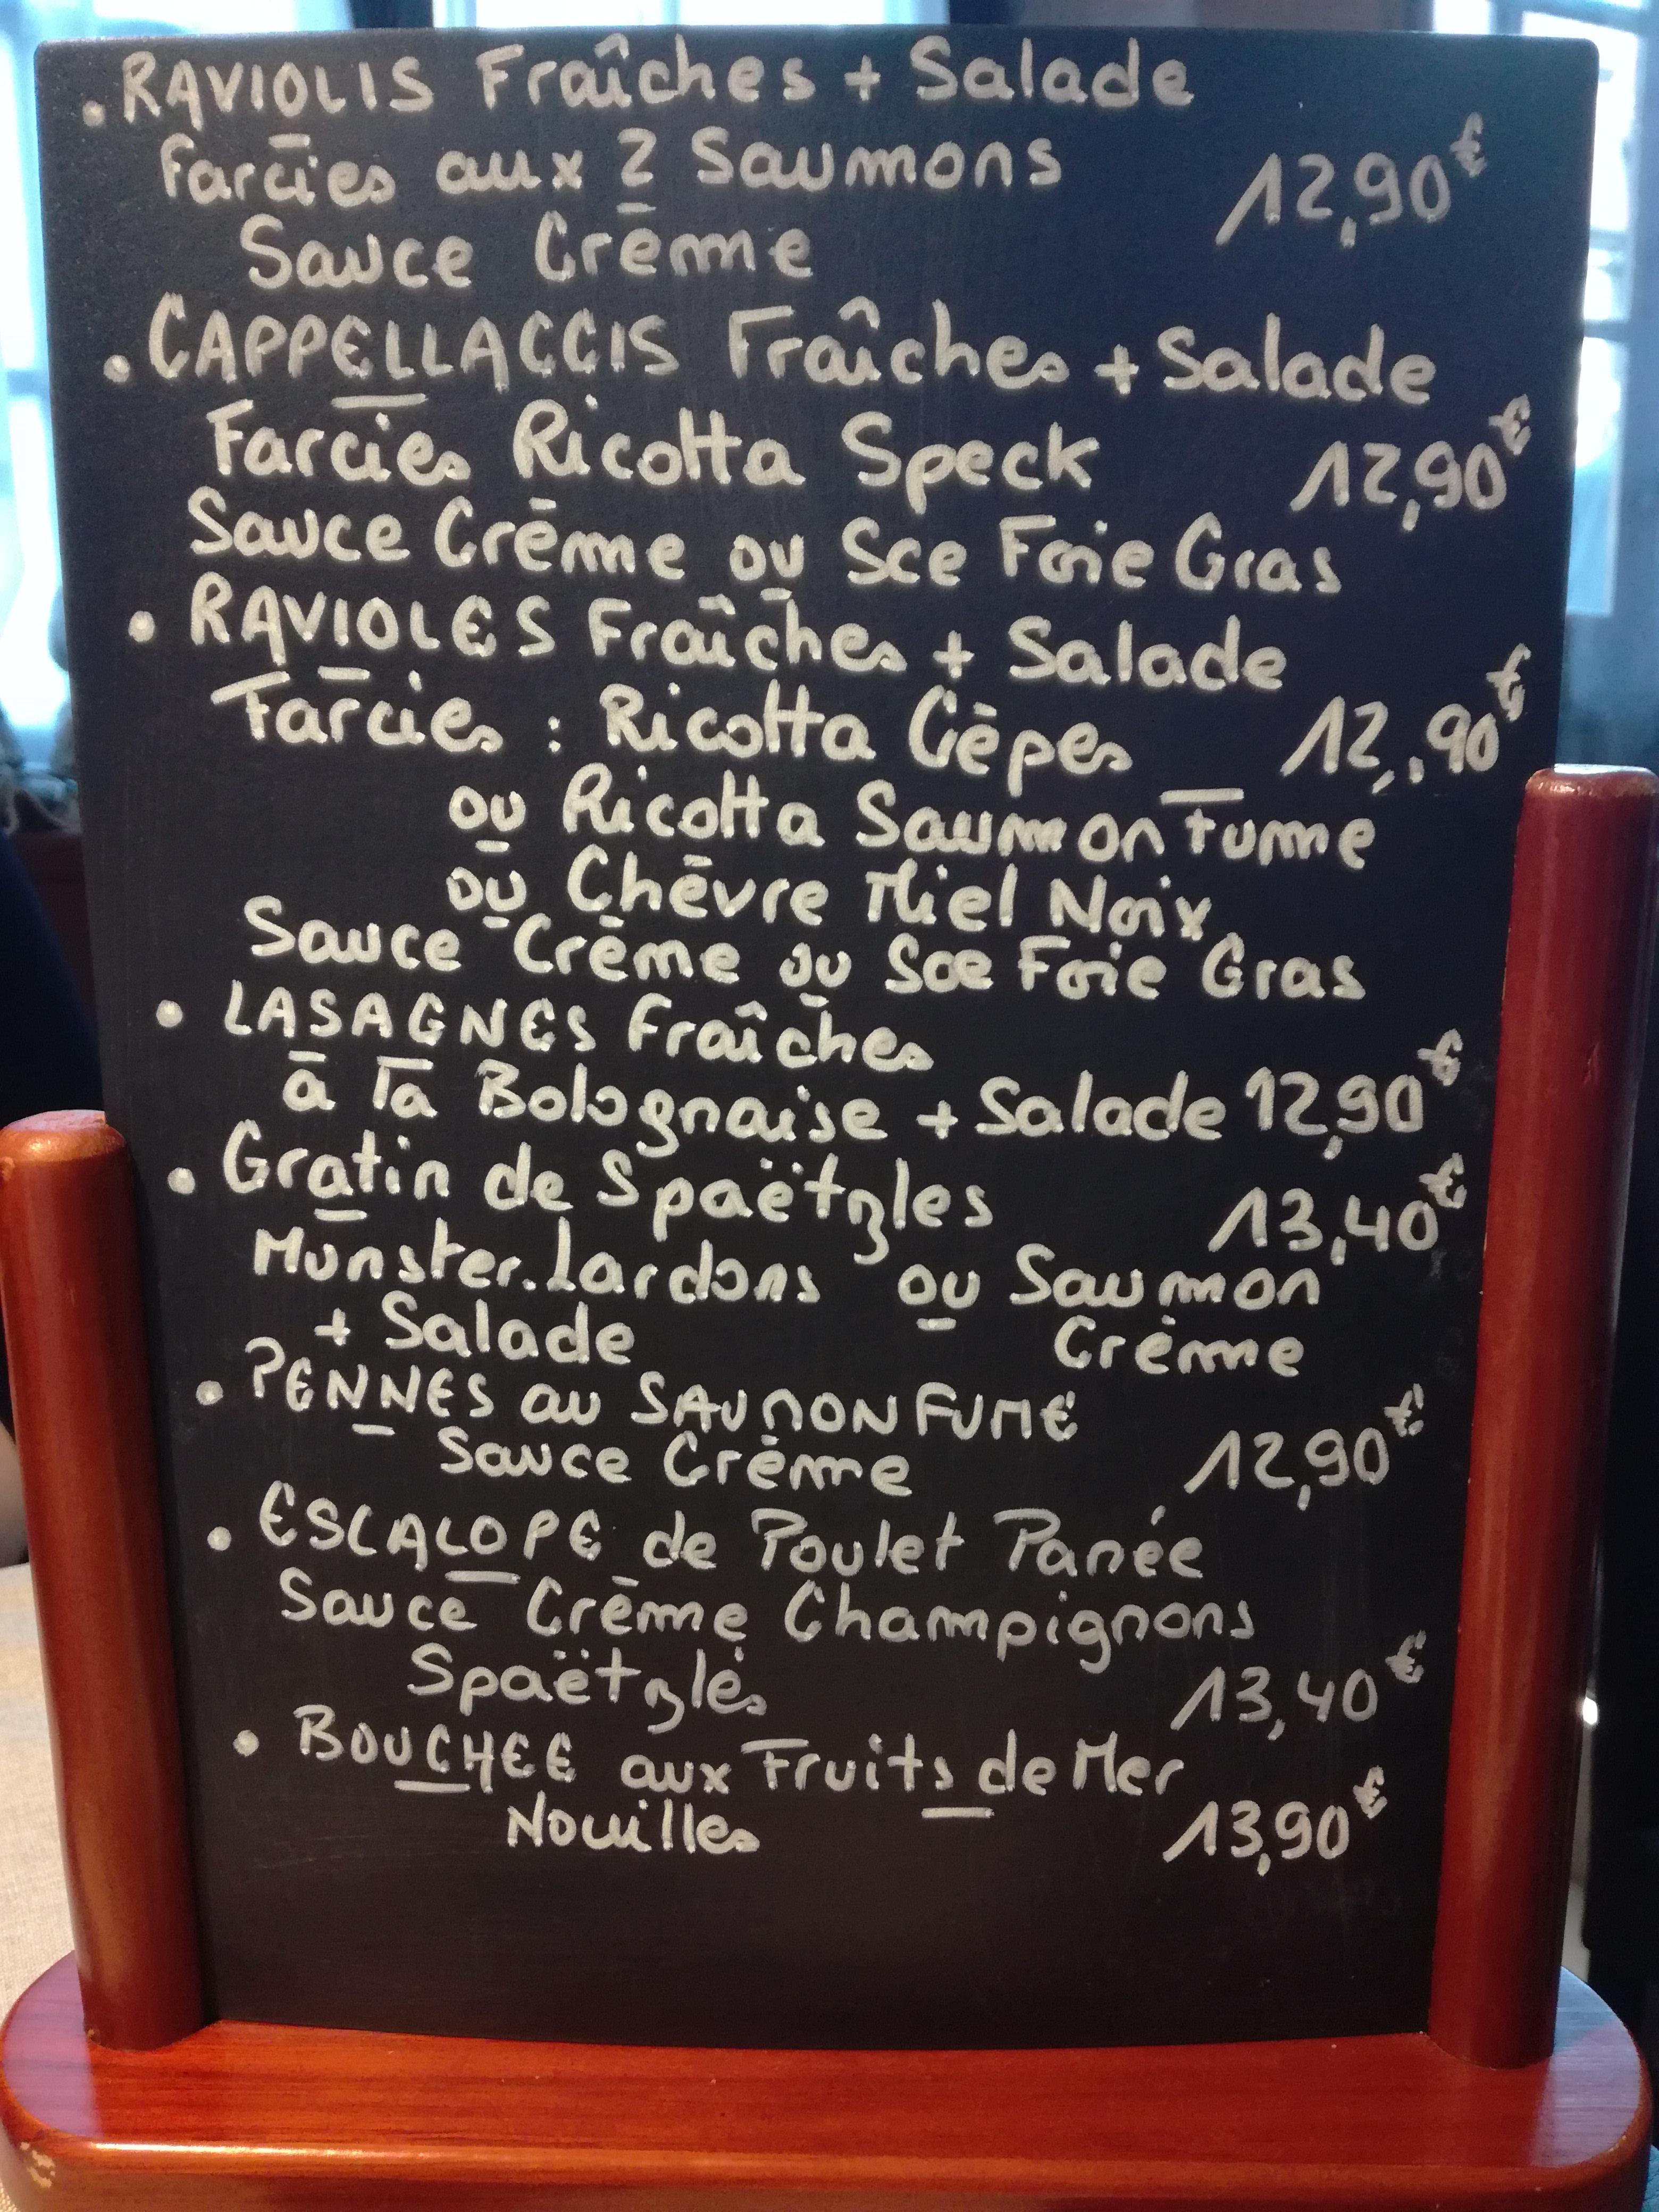 . RAVIOLIS Fraîches + Salade
Farcies aux 2 Saumons 12,90€
Sauce Crème
. CAPPELLACCIS Fraîches + Salade
Farcies Ricotta Speck 12,90€
Sauce Crème ou Sce Foie Gras
. RAVIOLES Fraîches + Salade
Farcies : Ricotta Cèpes 12,90€
ou Ricotta Saumon Fume
ou Chèvre Miel Noix
Sauce Crème ou Sce Foie Gras
. LASAGNES Fraîches
à la Bolognaise + Salade 12,90€
. Gratin de Spaëtzles 13,40€
Munster.Lardons ou Saumon
+ Salade Crème
. PENNES au SAUMON FUME
Sauce Crème 12,90€
. ESCALOPE de Poulet Panée
Sauce Crème Champignons
Spaëtzles 13,40€
. BOUCHEE aux Fruits de Mer
Nouilles 13,90€